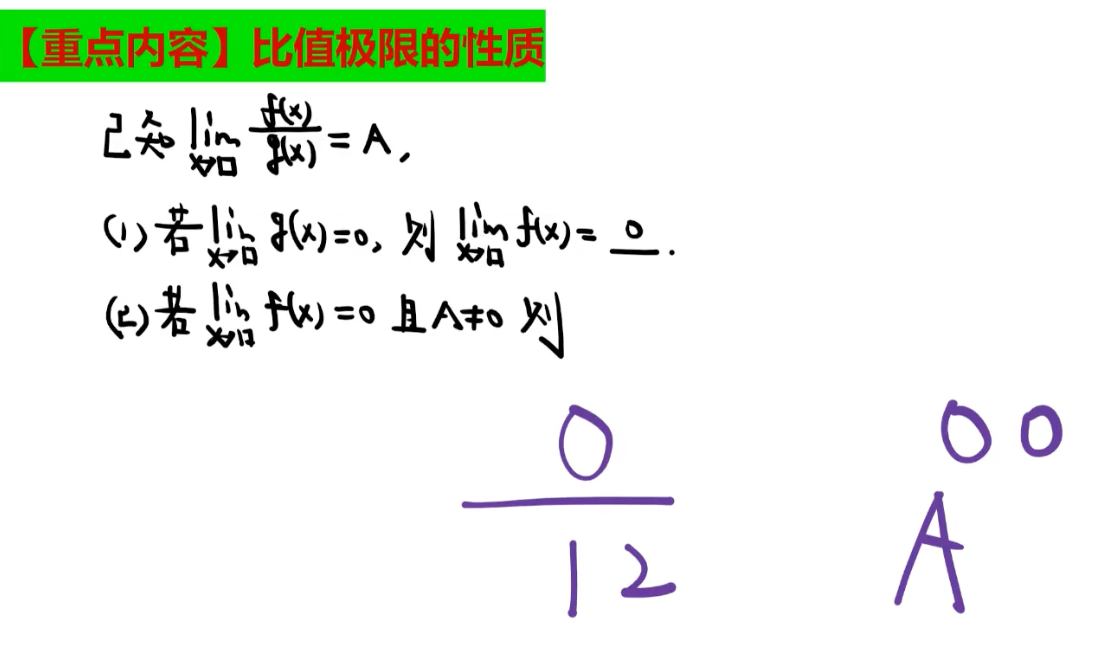 【重点内容】比值极限的性质
已知 lim x→□ f(x)/g(x) = A,
(1) 若 lim x→□ g(x)=0, 则 lim x→□ f(x)= 0 .
(2) 若 lim x→□ f(x)=0 且 A≠0 则
0 0 0
1 2 A